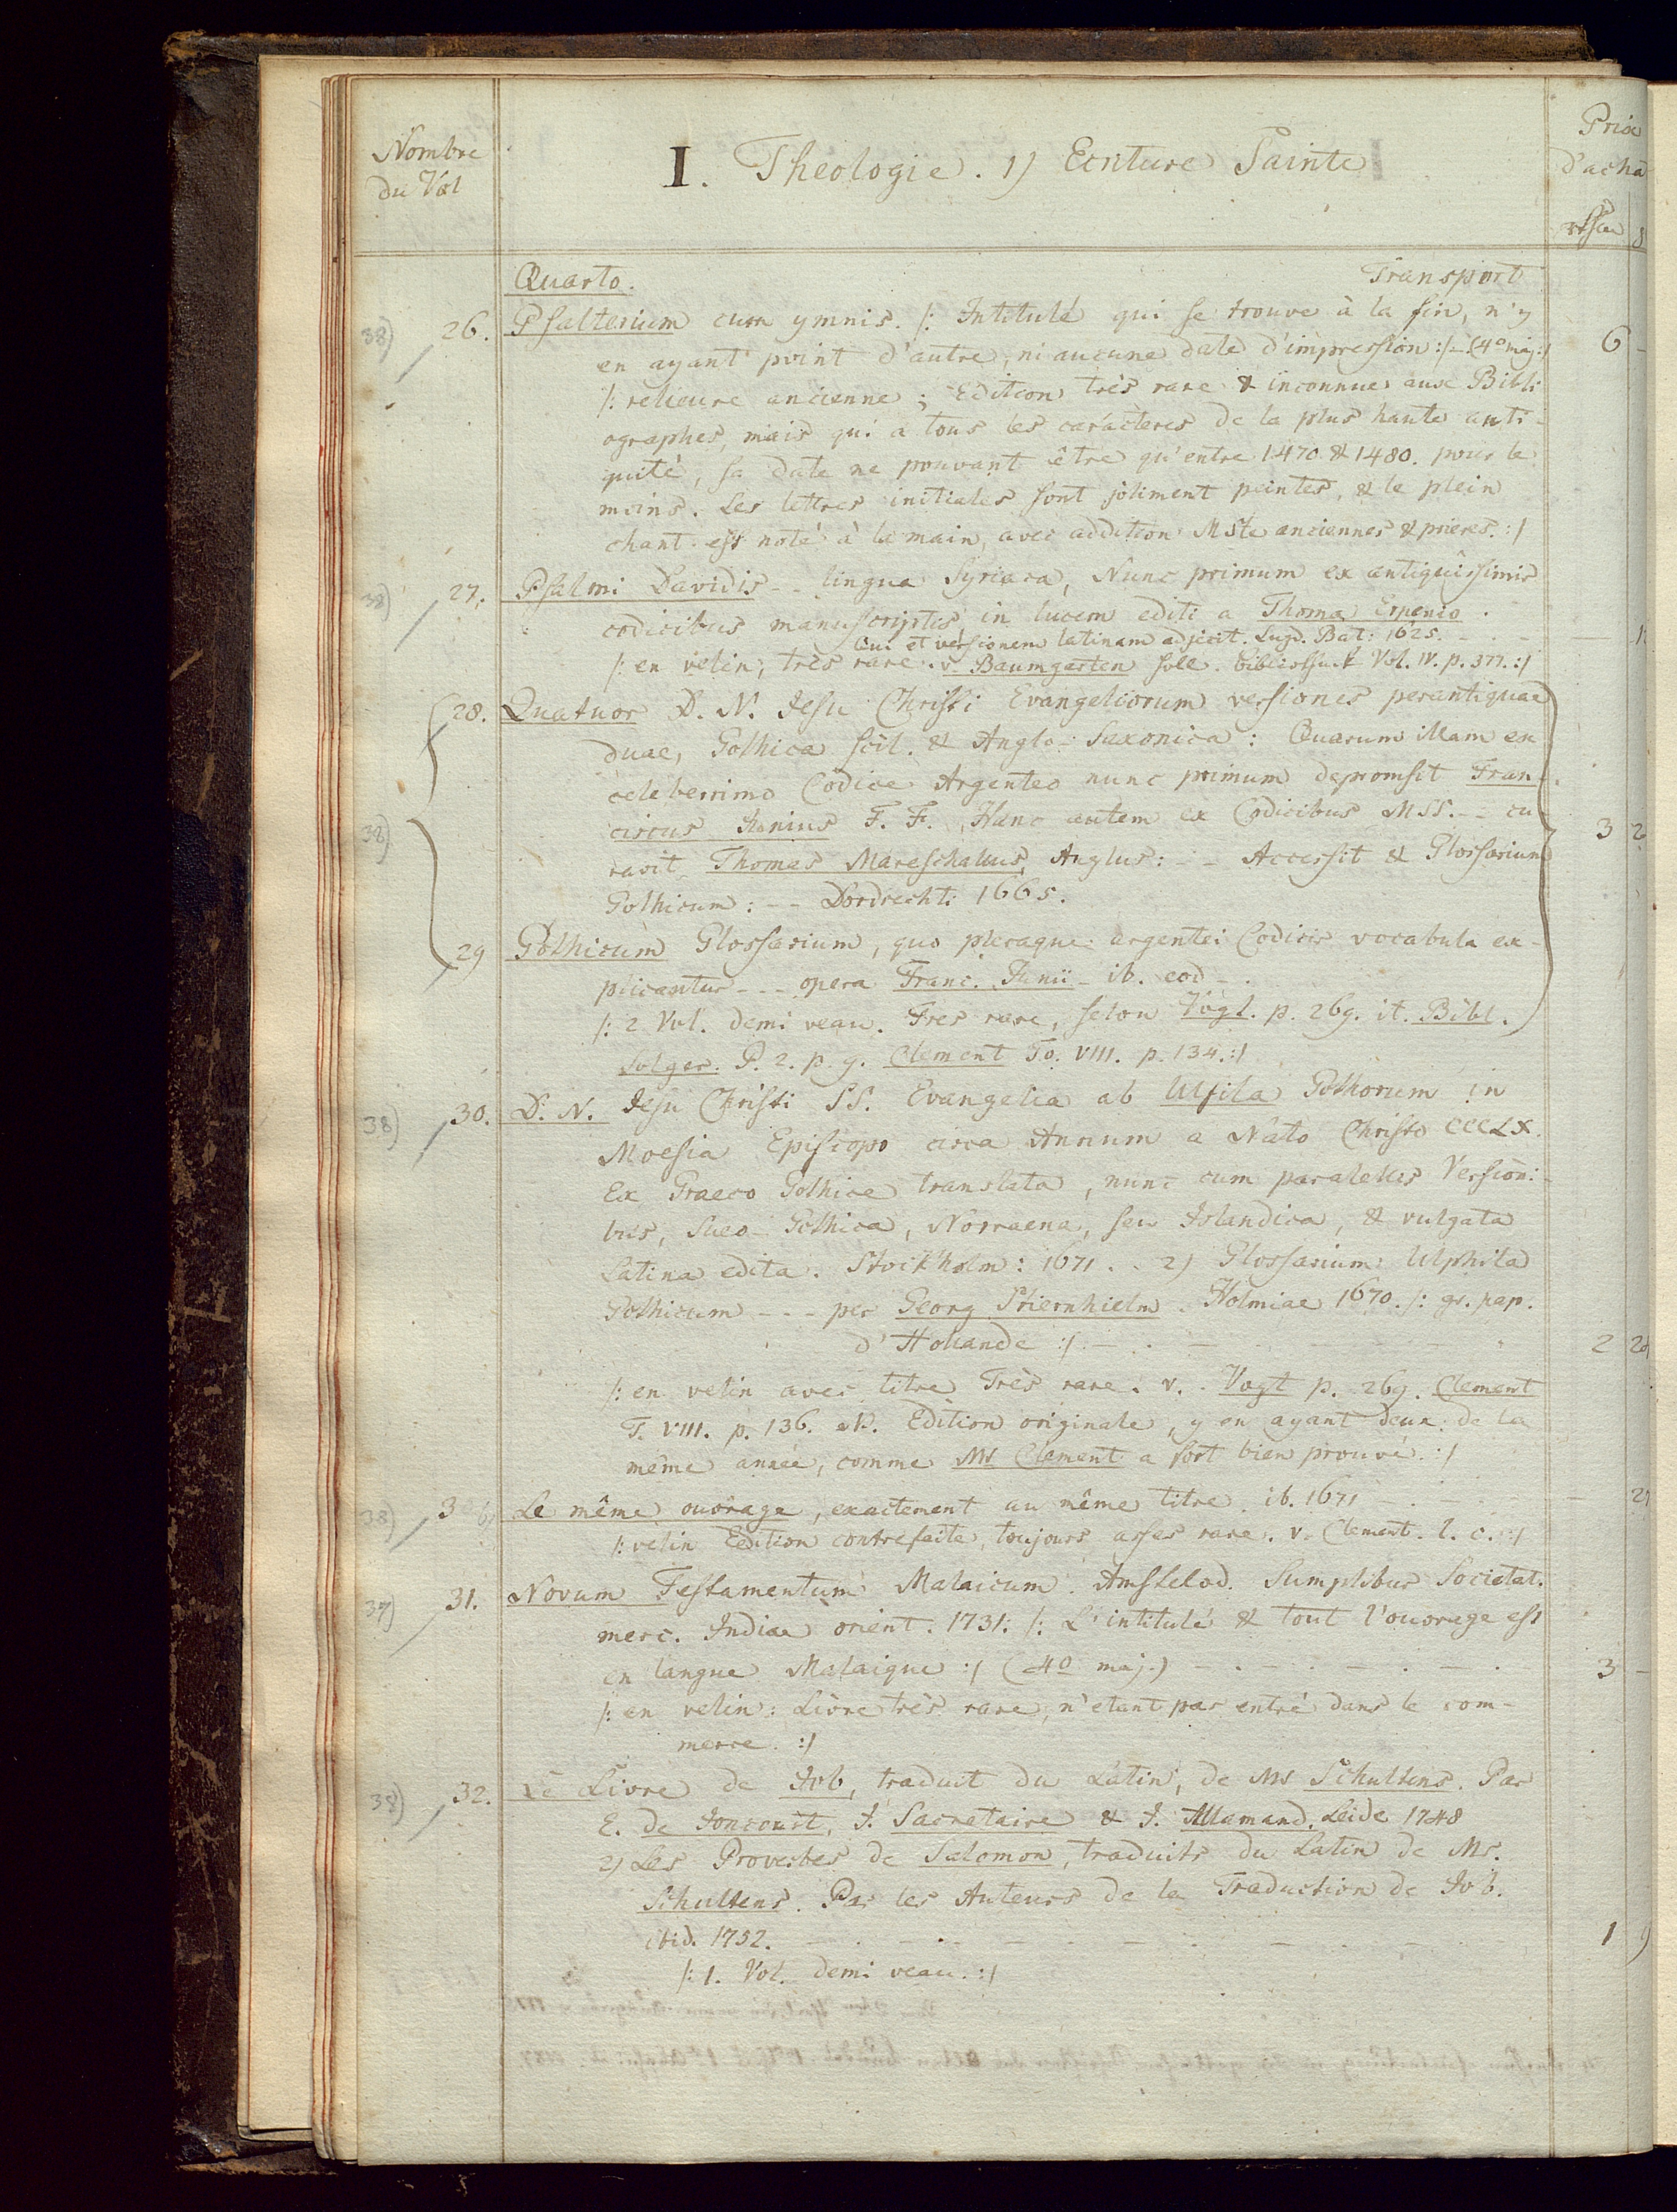 Nombre
du Vol
I. Theologie. 1) Ecriture Sainte
Prix
d'acha
Quarto. Transport
38) 26. Psalterium cum ymnis. /: Intitulé qui se trouve à la fin, n'y
en ayant point d'autre, ni aucune date d'impression :/ - (4o maj:/ 6 -
/: relieure ancienne; Edition très rare & inconnue aux Bibli
ographes, mais qui a tous les caractères de la plus haute anti-
quité, sa date ne pouvant être qu'entre 1470 & 1480. pour le
moins. Les lettres initiales sont joliment peintes, & le plein
chant est noté à la main, avec addition Mste anciennes & prieres. :/
38) 27. Psalmi Davidis -- lingua Syriaca, Nunc primum ex antiquissimis
codicibus manuscriptis in lucem editi a Thoma Erpenio.
Qui et versionem latinam adjecit. Lugd. Bat: 1625. - - -
/: en velin; très rare. v. Baumgarten Vol. IV. p. 377. :/
28. Quatuor D. N. Jesu Christi Evangeliorum versiones perantiquae
duae, Gothica scil. & Anglo-Saxonica: Quarum illam ex
celeberrimo Codice Argenteo nunc primum depromsit Fran-
38) ciscus Junius F. F. Hanc autem ex Codicibus MSS. -- cu- 3 2
ravit Thomas Mareschallus, Anglus: -- Accessit & Glossarium
Gothicum: -- Dordrecht: 1665.
29 Gothicum Glossarium, quo pleraque argentei Codicis vocabula ex-
plicantur --- opera Franc. Junii - ib. eod -.
/: 2 Vol. demi veau. Tres rare, selon Vogt. p. 269. it. Bibl.
Solger. P. 2. p. 9. Clement To. VIII. p. 134. :/
38) 30. D. N. Jesu Christi SS. Evangelia ab Ulfila Gothorum in
Moesia Episcopo circa Annum a Nato Christo CCCLX.
Ex Graeco Gothice translata, nunc cum parallelis Versioni-
bus, Sueo-Gothica, Norraena, seu Islandica, & vulgata
Latina edita. Stockholm: 1671. . 2) Glossarium Ulphila
Gothicum --- per Georg Stiernhielm. Holmiae 1670. /: gr. pap.
d'Hollande :/ - . - - - - 2 20
/: en velin avec titre Très rare. v. Vogt p. 269. Clement
T. VIII. p. 136. NB. Edition originale, y en ayant deux de la
même année, comme Mr Clement a fort bien prouvé. :/
38) 30 b, Le même ouvrage, exactement au même titre. ib. 1671 - . - - 21
/: velin Edition contrefaite, toujours asses rare. v. Clement. l. c. :/
37) 31. Novum Testamentum Malaicum. Amstelod. Sumptibus Societat.
merc. Indiae orient. 1731: /: L'intitulé & tout l'ouvrage est
en langue Malaique :/ (4o maj.) - . - . - . - . 3 -
/: en velin: Livre très rare, n'etant pas entré dans le com-
merce. :/
38) 32. Le Livre de Job, traduit du Latin, de Mr Schultens. Par
E. de Joncourt, J. Sacretaire & J. Allamand. Leide 1748
2) Les Proverbes de Salomon, traduits du Latin de Mr.
Schultens. Par les Auteurs de la Traduction de Job.
ibid. 1752. - . - - - - - - 1 9
/: 1. Vol. demi veau. :/